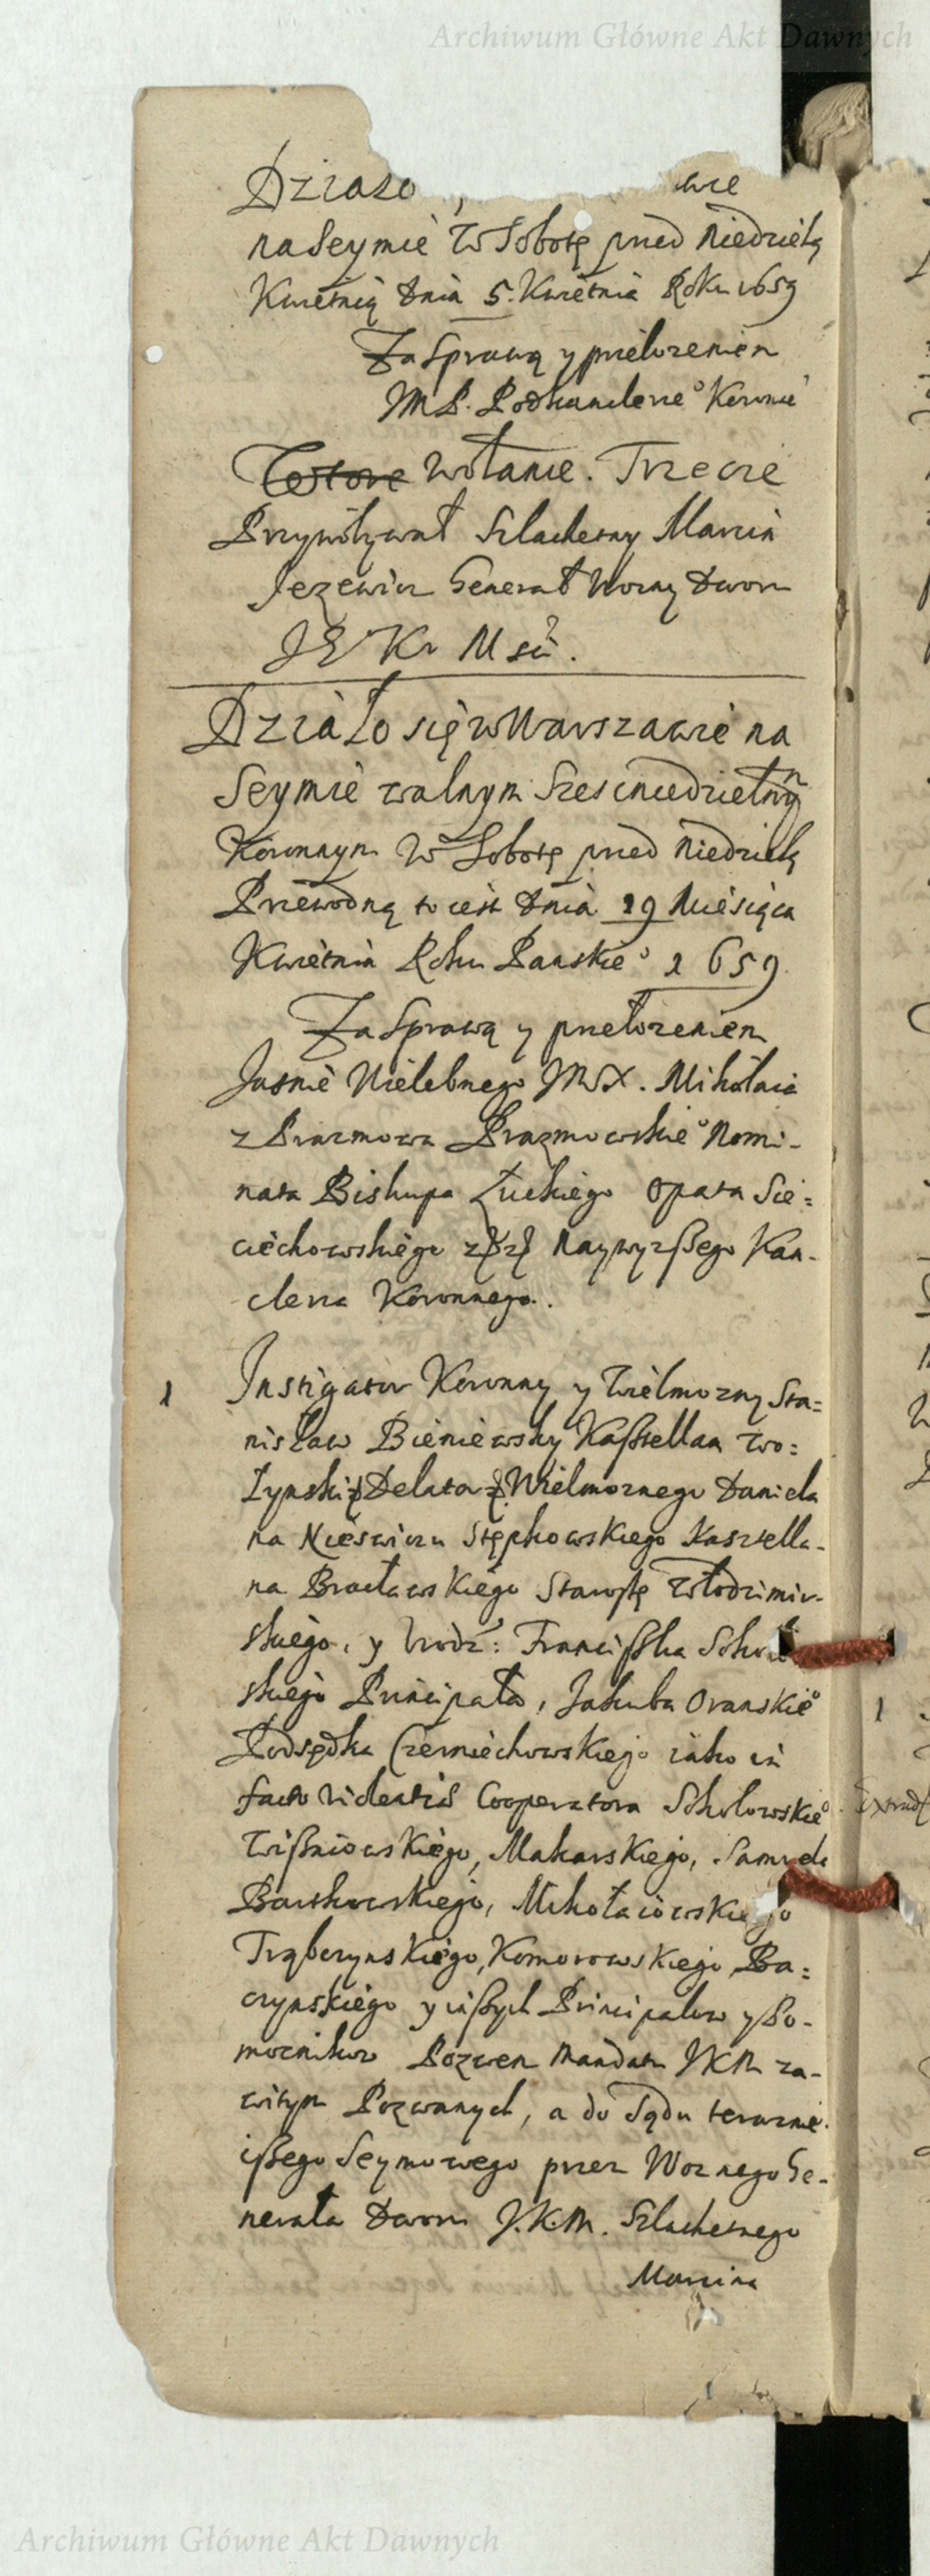 Archiwum Główne Akt Dawnych
Działo wie
na Seymie W Sobotę przed Niedzielą
Kwietnią dnia 5. Kwietnia Roku 1659
Za Sprawą y przełozeniem
JMP. Podkanclerze° Koronne°
Wołanie. Trzecie
Przywoływał Szlachetny Marcin
Jezewicz Generał Wozny Dworu
JE° Kr Msci.
Działo się w Warszawie na
Seymie walnym Szescniedzielnym
Koronnym W Sobotę przed Niedzielą
Przewodną to iest dnia 19 Miesiąca
Kwietnia Roku Panskie° 1659
Za Sprawą y przełozeniem
Jasnie Wielebnego JMX. Mikołaia
z Prazmowa Prazmowskie° Nomi-
nata Biskupa Łuckiego Opata Sie=
ciechowskiego Naywyzßego Kan-
clerza Koronnego.
1 Instigator Koronny y Wielmozny Sta=
nisław Bieniewsky Kaßtellan Wo=
łynski Delator Wielmoznego Daniela
na Nieswiczu Stępkowskiego Kasztella-
na Bracławskiego Starostę Włodzimir-
skiego, y Urodź: Francißka Sokoł
skiego Principała, Jakuba Oranskie°
Podsędka Czerniechowskiego iako in
facto videatis Cooperatora Sokolowskie°
Wißniowskiego, Makarskiego, Samuela
Mikołaiowskiego
Trąbczynskiego, Komorowskiego, Ba=
czynskiego y inßych Principałow y Po-
mocnikow Pozwem Mandatu JKM za-
witym Pozwanych, a do Sądu teraznie-
ißego Seymowego przez Woznego Ge-
nerała Dworu J.K.M. Szlachetnego
Marcina
1
Archiwum Główne Akt Dawnych